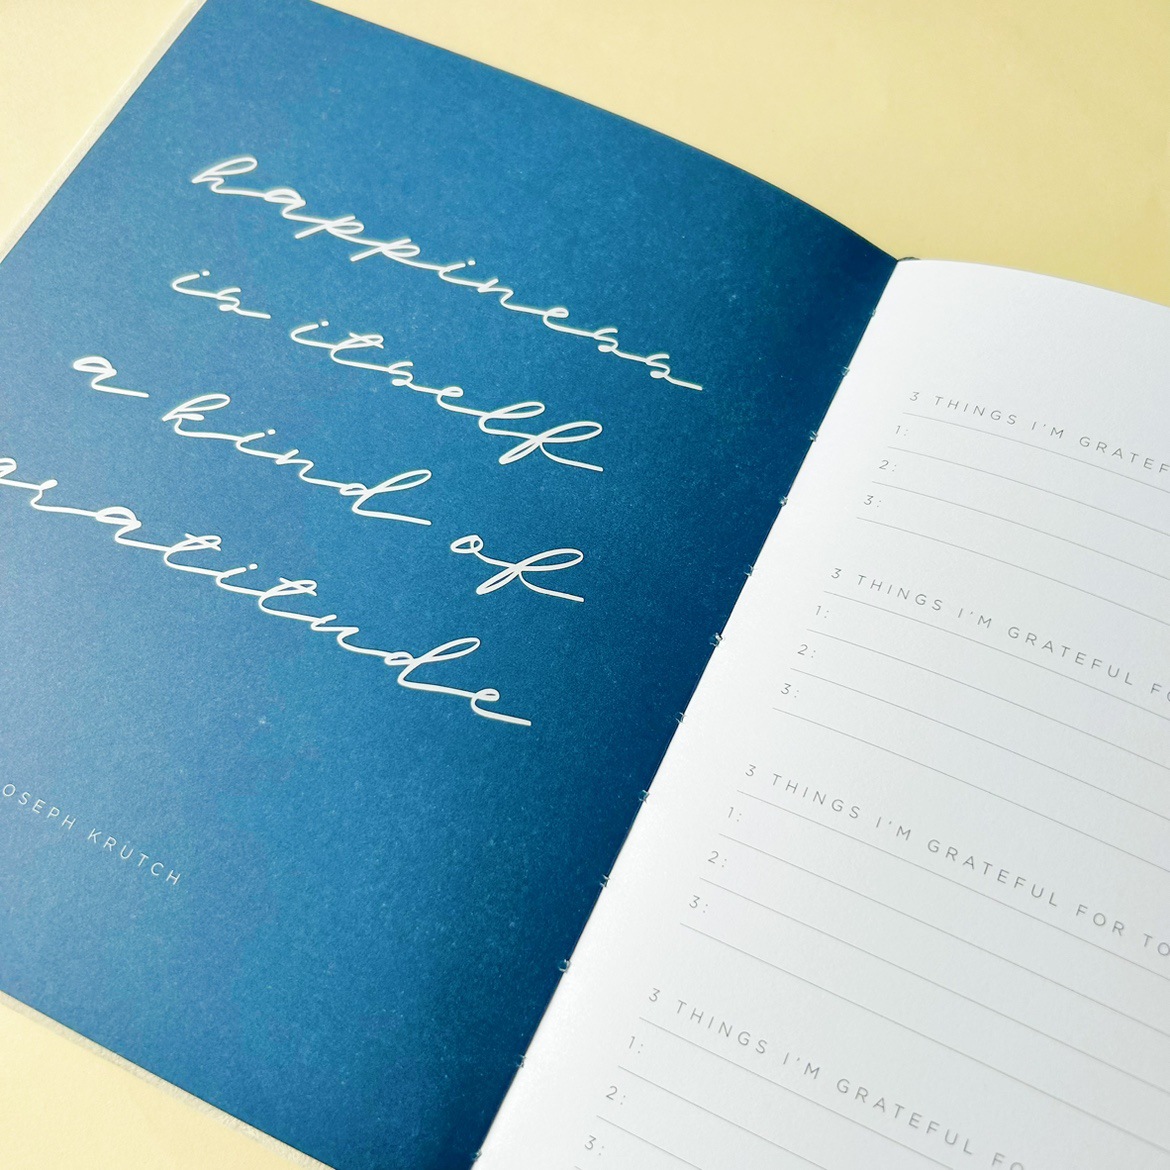 happiness
is itself
a kind of
gratitude
OSEPH KRUTCH
3 THINGS I'M GRATEF
1:
2:
3:
3 THINGS I'M GRATEFUL FO
1:
2:
3:
3 THINGS I'M GRATEFUL FOR TO
1:
2:
3:
3 THINGS I'M GRATEFUL FO
1:
2:
3: